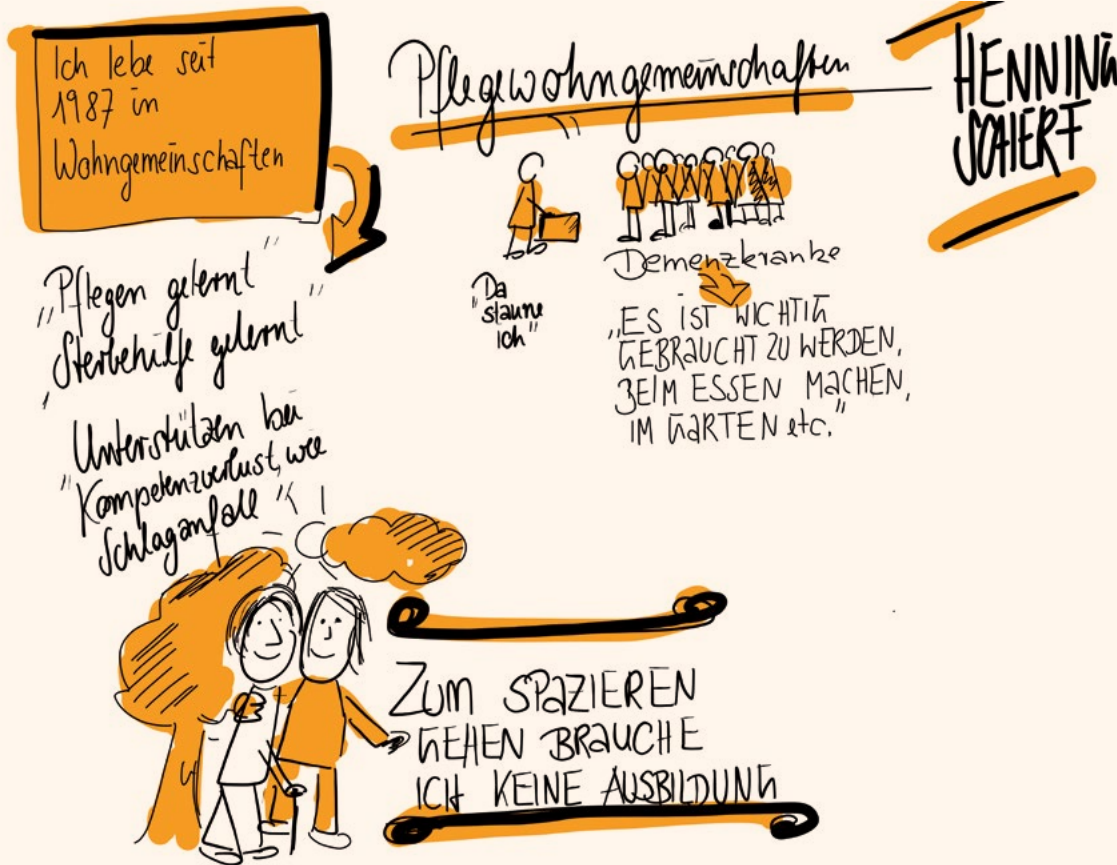 Ich lebe seit
1987 in
Wohngemeinschaften
Pflegewohngemeinschaften
HENNING
SCHERF
"Pflegen gelernt"
"Sterbehilfe gelernt"
Unterstützen bei
"Kompetenzverlust, wie
Schlaganfall"
"Da
staune
ich"
Demenzkranke
"ES IST WICHTIG
GEBRAUCHT ZU WERDEN,
BEIM ESSEN MACHEN,
IM GARTEN etc."
ZUM SPAZIEREN
GEHEN BRAUCHE
ICH KEINE AUSBILDUNG